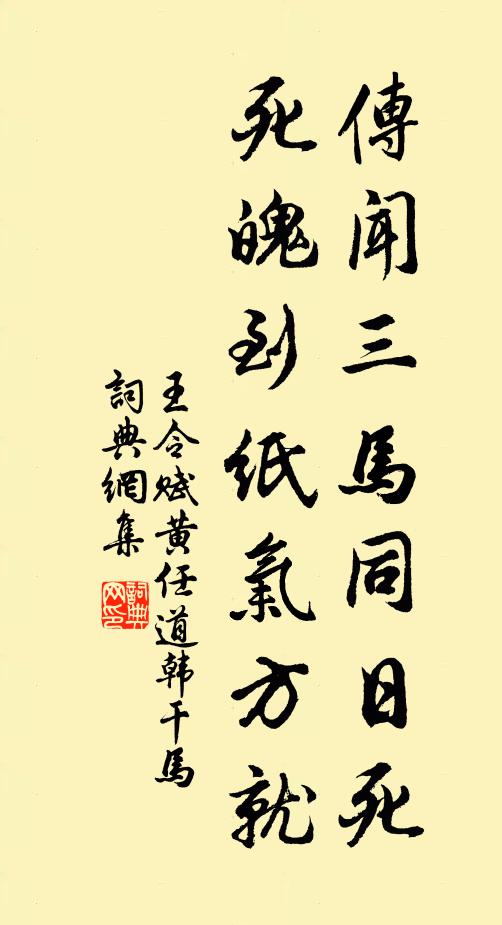 傳聞三馬同日死
死魄到紙氣方就
王令賦黄任道韩干馬
詞典網集
詞典網印